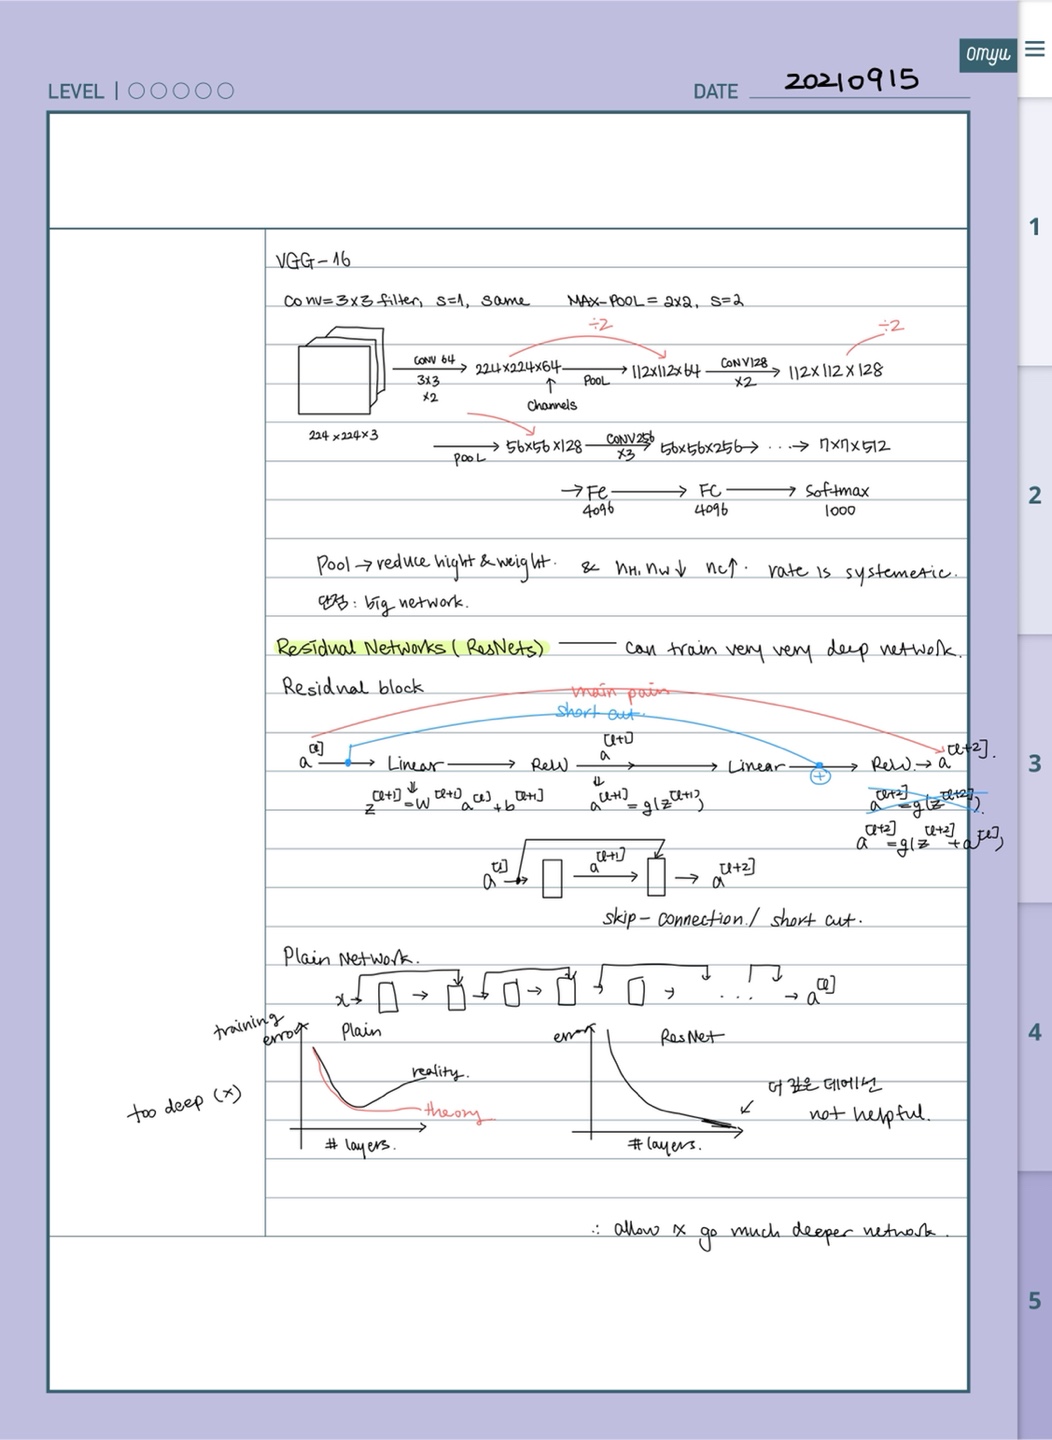 omyu
LEVEL
DATE 20210915
1
2
3
4
5
VGG-16
Conv = 3x3 filter, s=1, same MAX-POOL = 2x2, s=2
÷2 ÷2
224x224x3
CONV 64 3x3 x2 → 224x224x64 → POOL → 112x112x64 → CONV128 x2 → 112x112x128
↑ Channels
→ POOL 56x56x128 → CONV256 x3 56x56x256 → ... → 7x7x512
→ FC 4096 → FC 4096 → Softmax 1000
Pool → reduce hight & weight. & nH, nw↓ nc↑. rate is systemetic.
단점: big network.
Residual Networks (ResNets) — can train very very deep network.
Residual block
main pain
short cut.
a[l] → Linear → ReLU → a[l+1] → Linear → ⊕ → ReLU → a[l+2].
z[l+1] = w[l+1] a[l] + b[l+1] a[l+1] = g(z[l+1]) a[l+2] = g(z[l+2]).
a[l+2] = g(z[l+2] + a[l])
a[l] → a[l+1] → a[l+2]
skip-connection / short cut.
Plain Network.
x → → → → → ... → a[l]
training error Plain
reality.
theory
# layers.
too deep (x)
error ResNet
더 깊은 데에선
not helpful.
# layers.
∴ allow x go much deeper network.